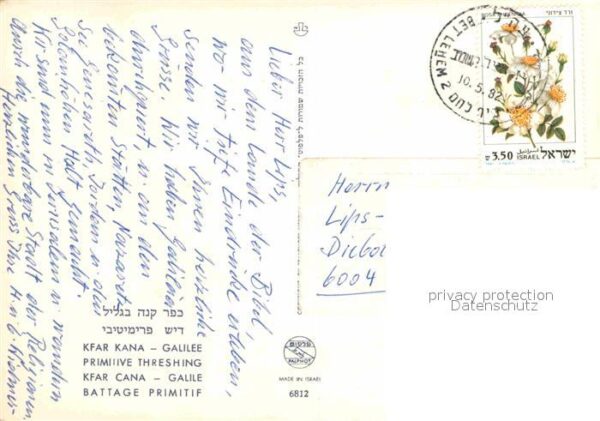 Lieber Herr Lips,
aus dem Lande der Bibel,
wo wir tiefe Eindrücke erleben,
senden wir Ihnen herzliche
Grüsse. Wir haben Galiläa
durchquert, u. an den
bekannten Stätten, Nazaret,
See Genezareth, Jordan u. den
Golanhöhen Halt gemacht.
Wir sind nun in Jerusalem u. wandern
durch die wunderbare Stadt der Religionen.
Herzlichen Gruss Ihre H. u.
כל הזכויות שמורות לפלפוט
BET LEHEM 2
10.5.82
ורד צידוני
3.50
ISRAEL
ישראל
Herrn
Lips-
Diebol
6004
privacy protection
Datenschutz
כפר קנה בגליל
דיש פרימיטיבי
KFAR KANA – GALILEE
PRIMIIVE THRESHING
KFAR CANA – GALILE
BATTAGE PRIMITIF
פלפוט
PALPHOT
MADE IN ISRAEL
6812